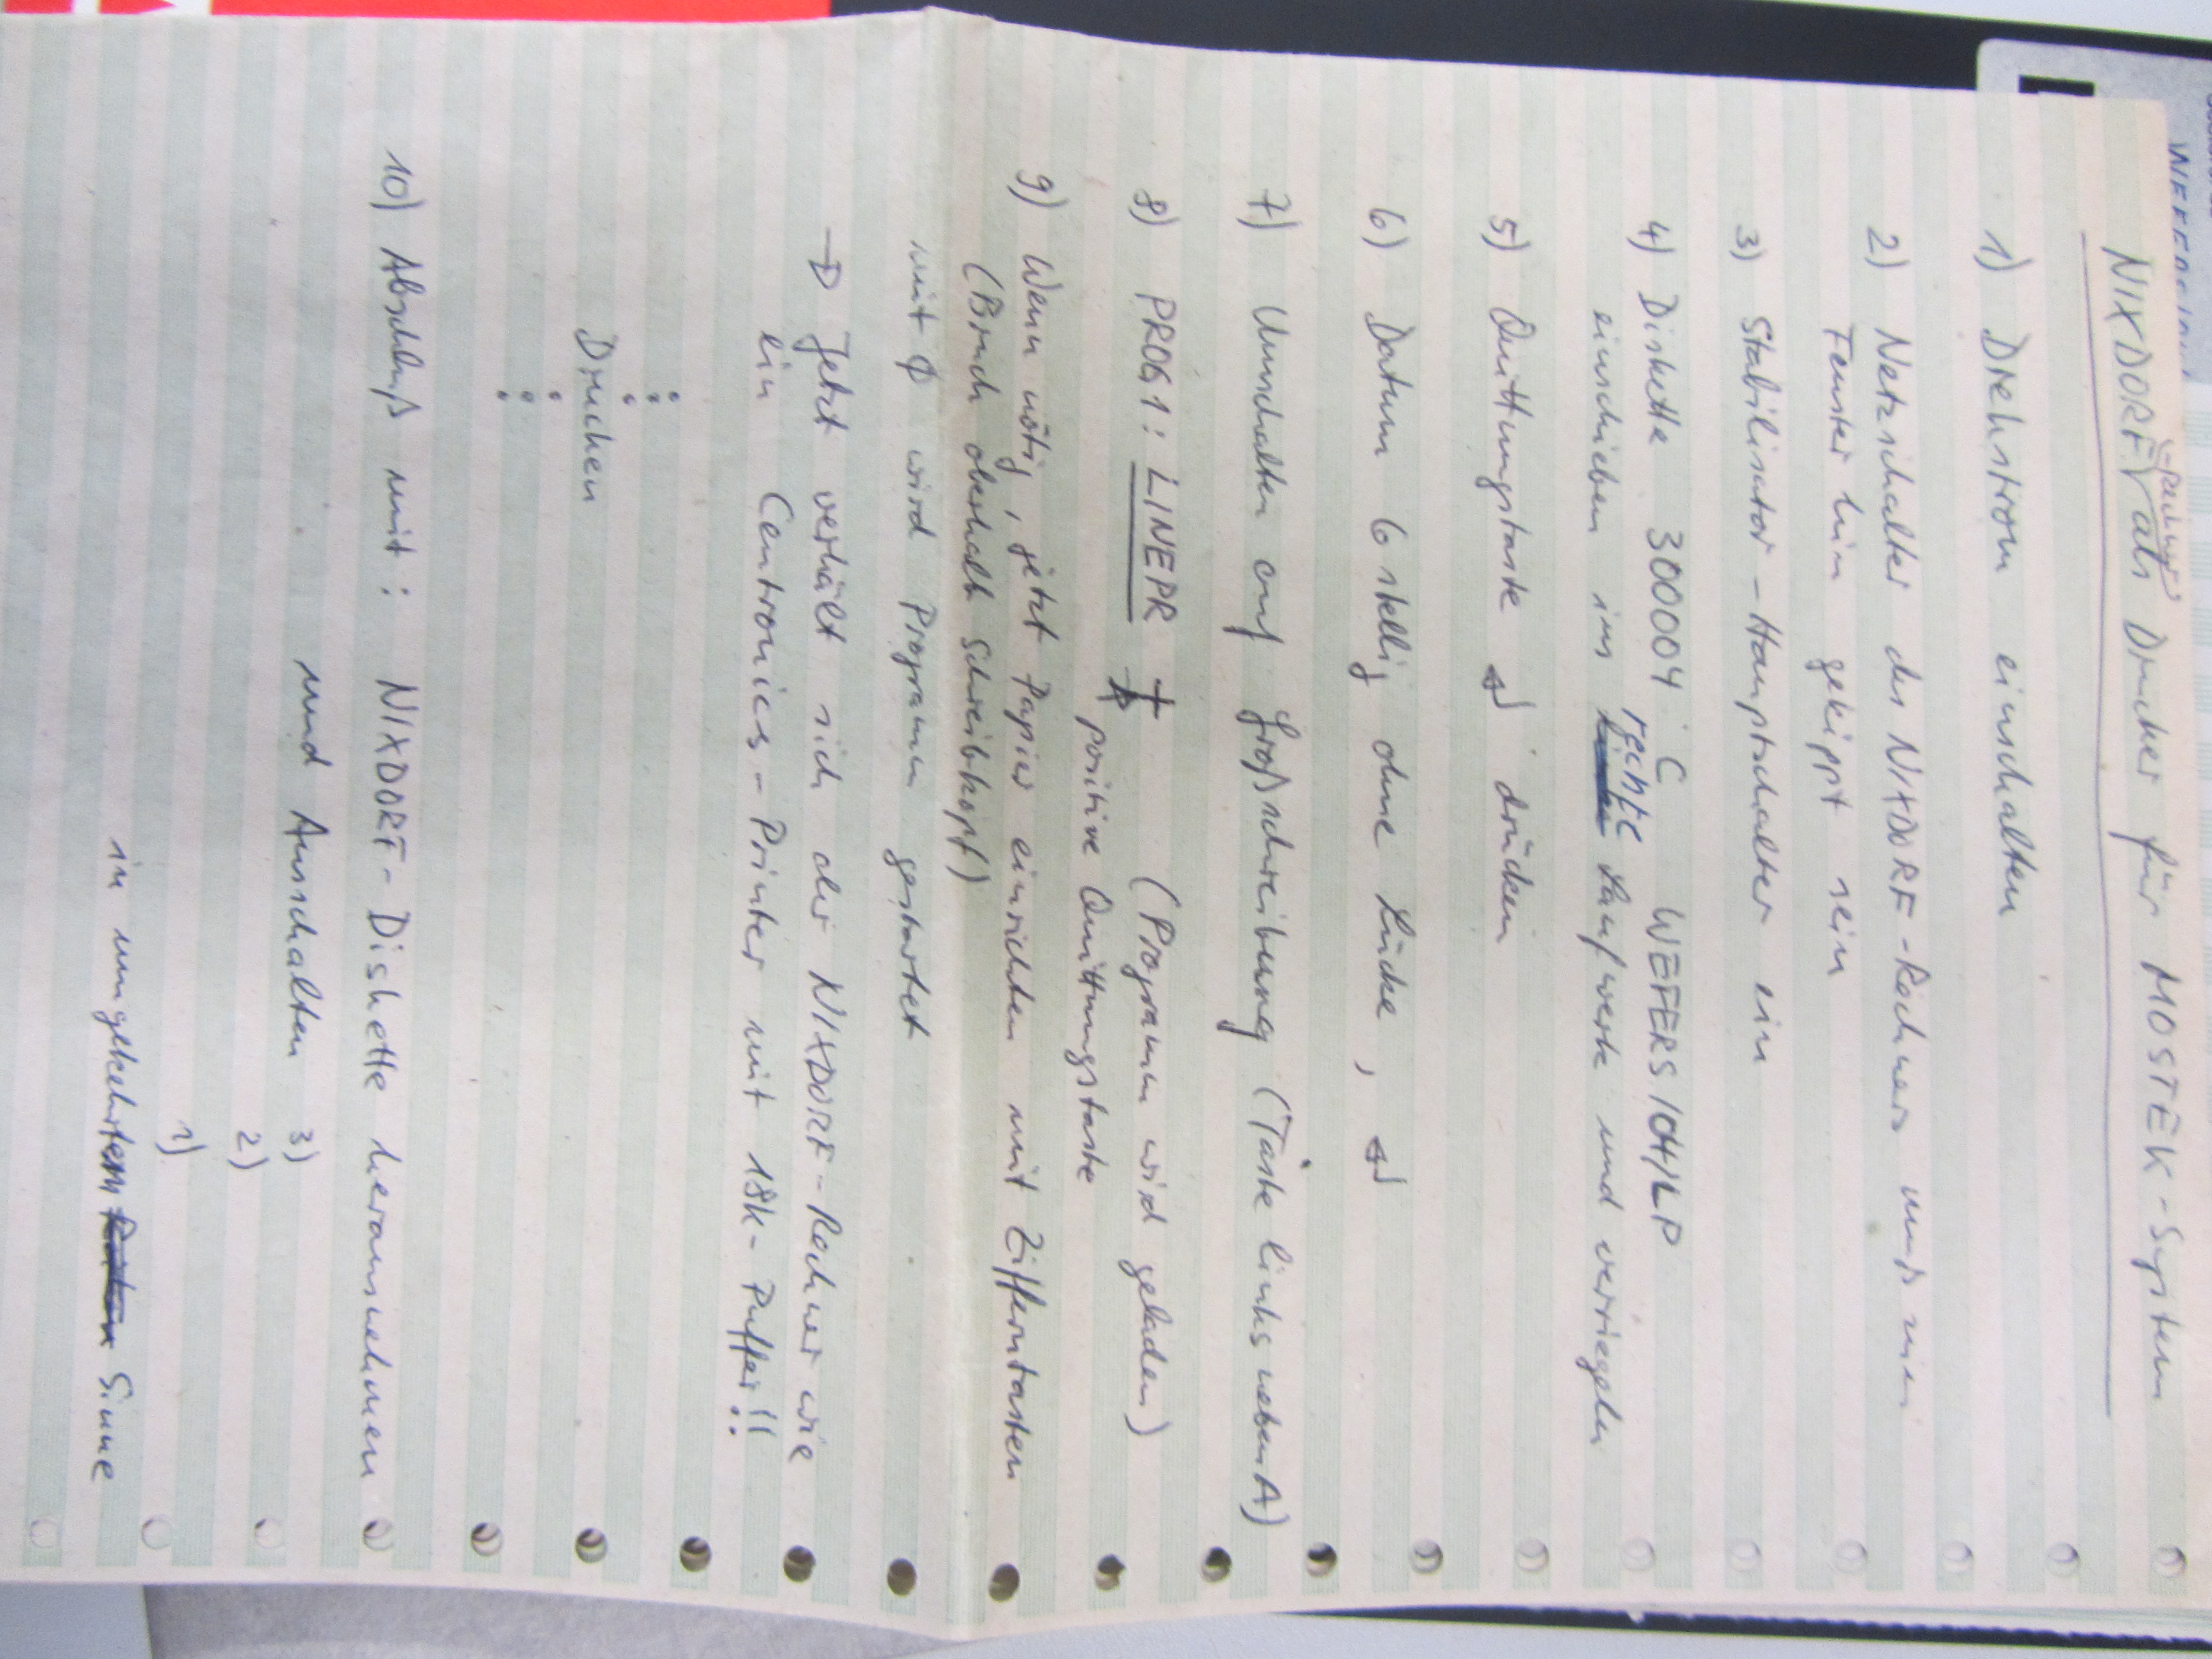 NIXDORF-Rechner als Drucker für MOSTEK-System
1) Drehstrom einschalten
2) Netzschalter des NIXDORF-Rechners muß zum
Fenster hin gekippt sein
3) Stabilisator-Hauptschalter ein
4) Diskette 300004 C WEFERS/OH/LP
einschieben ins rechte Laufwerk und verriegeln
5) Quittungstaste ↲ drücken
6) Datum 6stellig ohne Lücke, ↲
7) Umschalten auf Großschreibung (Taste links neben A)
8) PROG1: LINEPR + (Programm wird geladen)
positive Quittungstaste
9) Wenn nötig, jetzt Papier einrichten mit Zifferntasten
(Bruch oberhalb Schreibkopf)
mit Ø wird Programm gestartet
→ Jetzt verhält sich der NIXDORF-Rechner wie
ein Centronics-Printer mit 18k-Puffer!!
Drucken
10) Abschluß mit: NIXDORF-Diskette herausnehmen
und Ausschalten 3)
2)
1)
in umgekehrtem Sinne